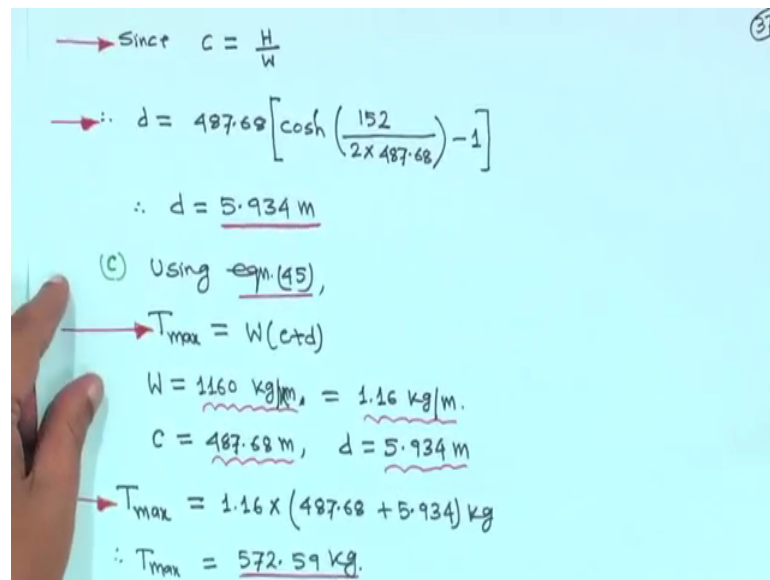 37
Since C = H/W
∴ d = 487.68 [cosh (152/(2×487.68)) - 1]
∴ d = 5.934 m
(C) Using eqn.(45),
Tmax = W(c+d)
W = 1160 kg/m, = 1.16 kg/m.
C = 487.68 m, d = 5.934 m
Tmax = 1.16 × (487.68 + 5.934) kg
∴ Tmax = 572.59 kg.